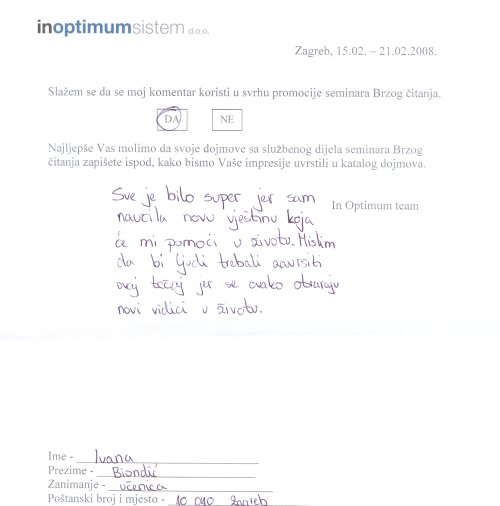 inoptimumsistem d.o.o.
Zagreb, 15.02. – 21.02.2008.
Slažem se da se moj komentar koristi u svrhu promocije seminara Brzog čitanja.
DA NE
Najljepše Vas molimo da svoje dojmove sa službenog dijela seminara Brzog
čitanja zapišete ispod, kako bismo Vaše impresije uvrstili u katalog dojmova.
In Optimum team
Sve je bilo super jer sam
naučila novu vještinu koja
će mi pomoći u životu. Mislim
da bi ljudi trebali završiti
ovaj tečaj jer se ovako otvaraju
novi vidici u životu.
Ime - Ivana
Prezime - Biondić
Zanimanje - učenica
Poštanski broj i mjesto - 10 040 Zagreb